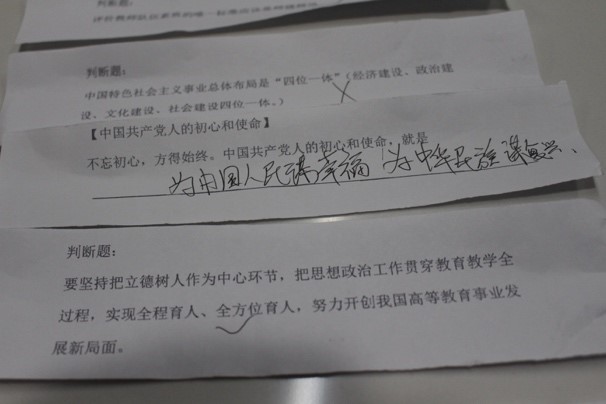 判断题：
判断题：
中国特色社会主义事业总体布局是“四位一体”（经济建设、政治建
设、文化建设、社会建设四位一体。）
【中国共产党人的初心和使命】
不忘初心，方得始终。中国共产党人的初心和使命，就是
为中国人民谋幸福 为中华民族谋复兴、
判断题：
要坚持把立德树人作为中心环节，把思想政治工作贯穿教育教学全
过程，实现全程育人、全方位育人，努力开创我国高等教育事业发
展新局面。